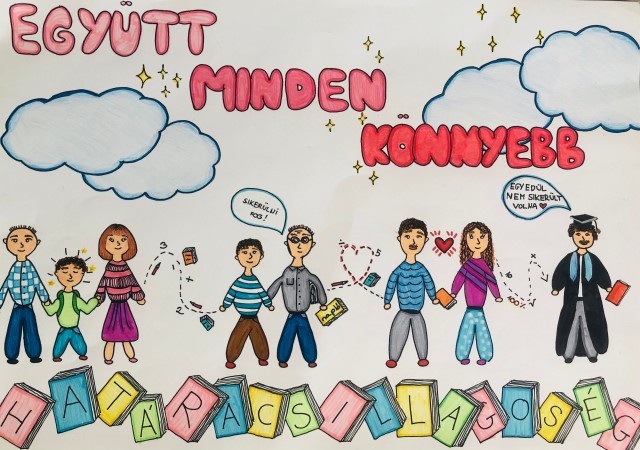 EGYÜTT
MINDEN
KÖNNYEBB
SIKERÜLNI
FOG!
EGYEDÜL
NEM SIKERÜLT
VOLNA
3
2
napló
5
6
100%
HATÁRACSILLAGOSÉG